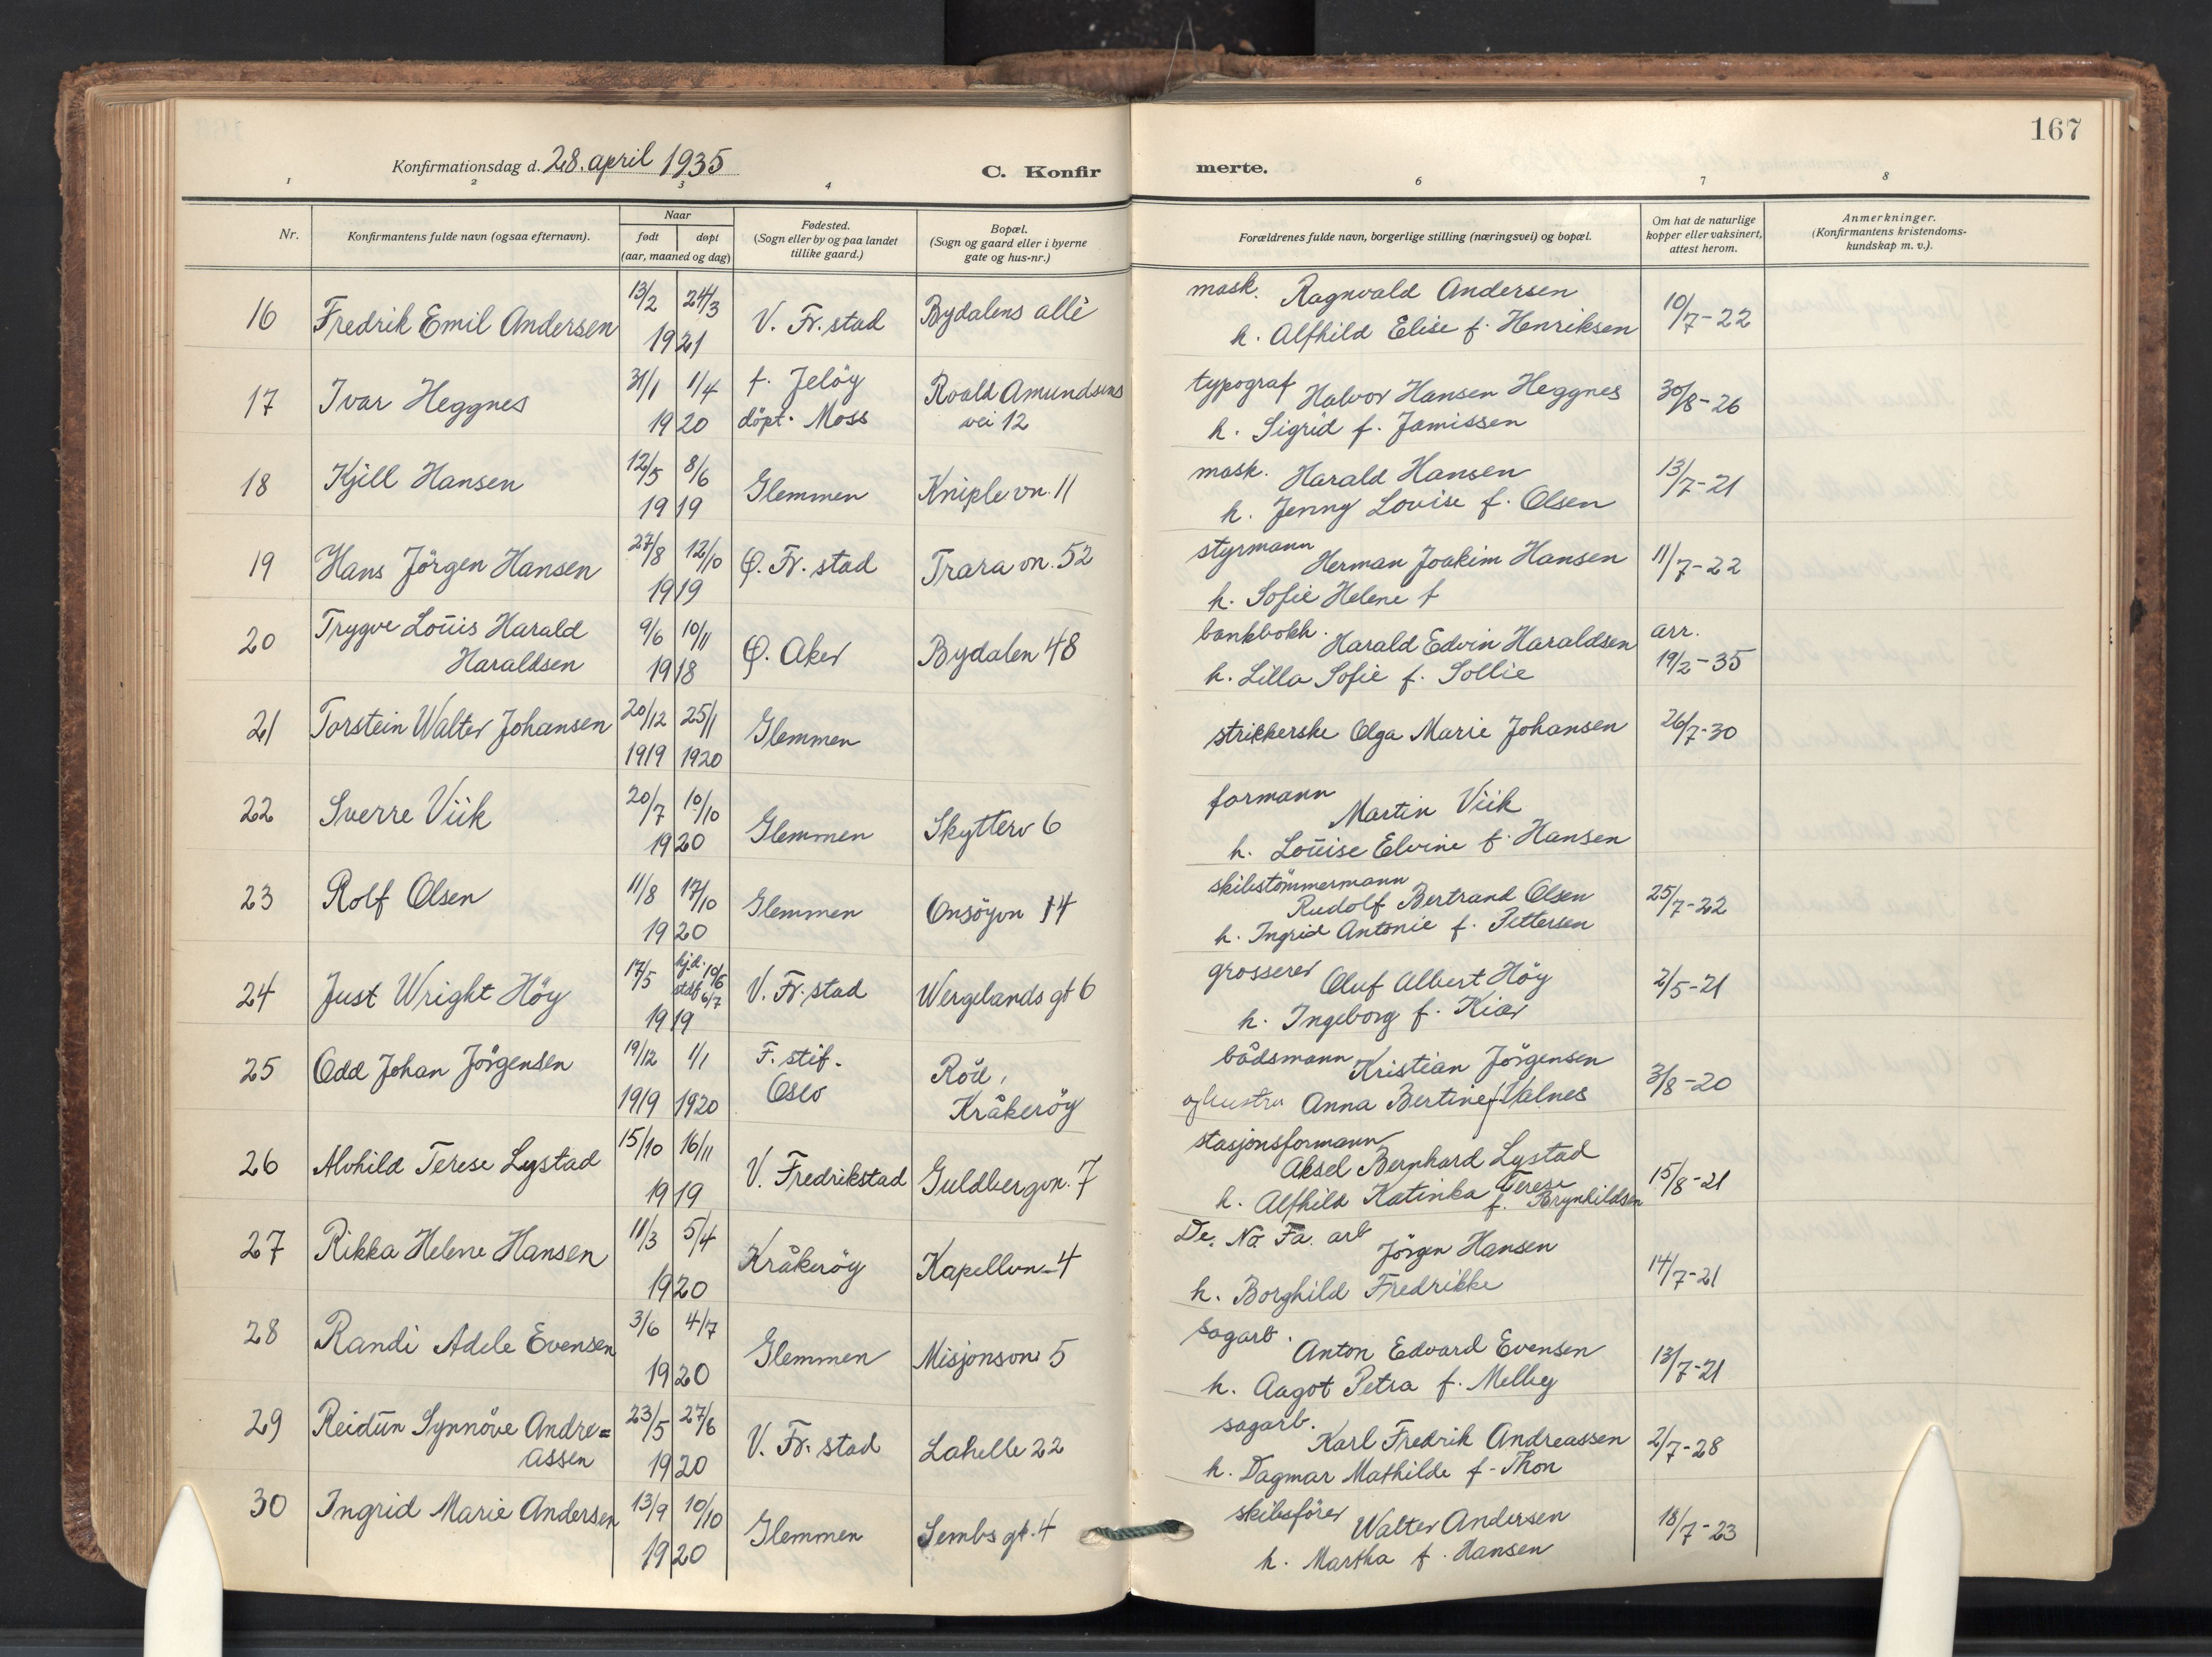 167
Konfirmationsdag d. 28. april 1935
C. Konfirmerte.
1 2 3 4 6 7 8
Nr.
Konfirmantens fulde navn (ogsaa efternavn).
Naar
født døpt
(aar, maaned og dag)
Fødested.
(Sogn eller by og paa landet
tillike gaard.)
Bopæl.
(Sogn og gaard eller i byerne
gate og hus-nr.)
Forældrenes fulde navn, borgerlige stilling (næringsvei) og bopæl.
Om hat de naturlige
kopper eller vaksinert,
attest herom.
Anmerkninger.
(Konfirmantens kristendoms-
kundskap m. v.).
16 Fredrik Emil Andersen 13/2 24/3 V. Fr. stad Bydalens allè mask. Ragnvald Andersen 10/7-22
1921 h. Alfhild Elise f. Henriksen
17 Ivar Heggnes 31/1 11/4 f. Jelöy Roald Amundsens typograf Halvor Hansen Heggnes 30/8-26
1920 döpt. Moss vei 12 h. Sigrid f. Jamissen
18 Kjell Hansen 12/5 8/6 Glemmen Kniple vn. 11 mask. Harald Hansen 13/7-21
1919 h. Jenny Lovise f. Olsen
19 Hans Jörgen Hansen 27/8 12/10 Ø. Fr. stad Trara vn. 52 styrmann Herman Joakim Hansen 11/7-22
1919 h. Sofie Helene f
20 Trygve Louis Harald 9/6 10/11 Ø. Aker Bydalen 48 bankbokh. Harald Edvin Haraldsen arr.
Haraldsen 1918 h. Lilla Sofie f. Sollie 19/2-35
21 Torstein Walter Johansen 20/12 25/1 Glemmen strikkerske Olga Marie Johansen 26/7-30
1919 1920
22 Sverre Viik 20/7 10/10 Glemmen Skytterv 6 formann Martin Viik
1920 h. Louise Elvine f. Hansen
23 Rolf Olsen 11/8 17/10 Glemmen Onsöyvn 14 skibstömmermann
1920 Rudolf Bertrand Olsen 25/7-22
h. Ingrid Antonie f. Pettersen
24 Just Wright Höy 17/5 hj.d. 10/6 V. Fr. stad Wergelands gt 6 grosserer Oluf Albert Höy 2/5-21
stadf 6/7
1919 h. Ingeborg f. Kiær
25 Odd Johan Jörgensen 19/12 1/1 F. stif. Röd, bådsmann Kristian Jörgensen 3/8-20
1919 1920 Oslo Kråkeröy og hustru Anna Bertine f. Valnes
26 Alvhild Terese Lystad 15/10 16/11 V. Fredrikstad Guldbergvn. 7 stasjonsformann
1919 Aksel Bernhard Lystad 15/8-21
h. Alfhild Katinka Terese f. Brynhildsen
27 Rikka Helene Hansen 11/3 5/4 Kråkeröy Kapellvn-4 De. No Fa. arb Jörgen Hansen 14/7-21
1920 h. Borghild Fredrikke
28 Randi Adele Evensen 3/6 4/7 Glemmen Misjonsvn 5 sagarb. Anton Edvard Evensen 13/7-21
1920 h. Aagot Petra f. Melby
29 Reidun Synnöve Andre= 23/5 27/6 V. Fr. stad Lahelle 22 sagarb. Karl Fredrik Andreassen 2/7-28
assen 1920 h. Dagmar Mathilde f. Thon
30 Ingrid Marie Andersen 13/9 10/10 Glemmen Sembs gt. 4 skibsförer Walter Andersen 18/7-23
1920 h. Martha f. Hansen